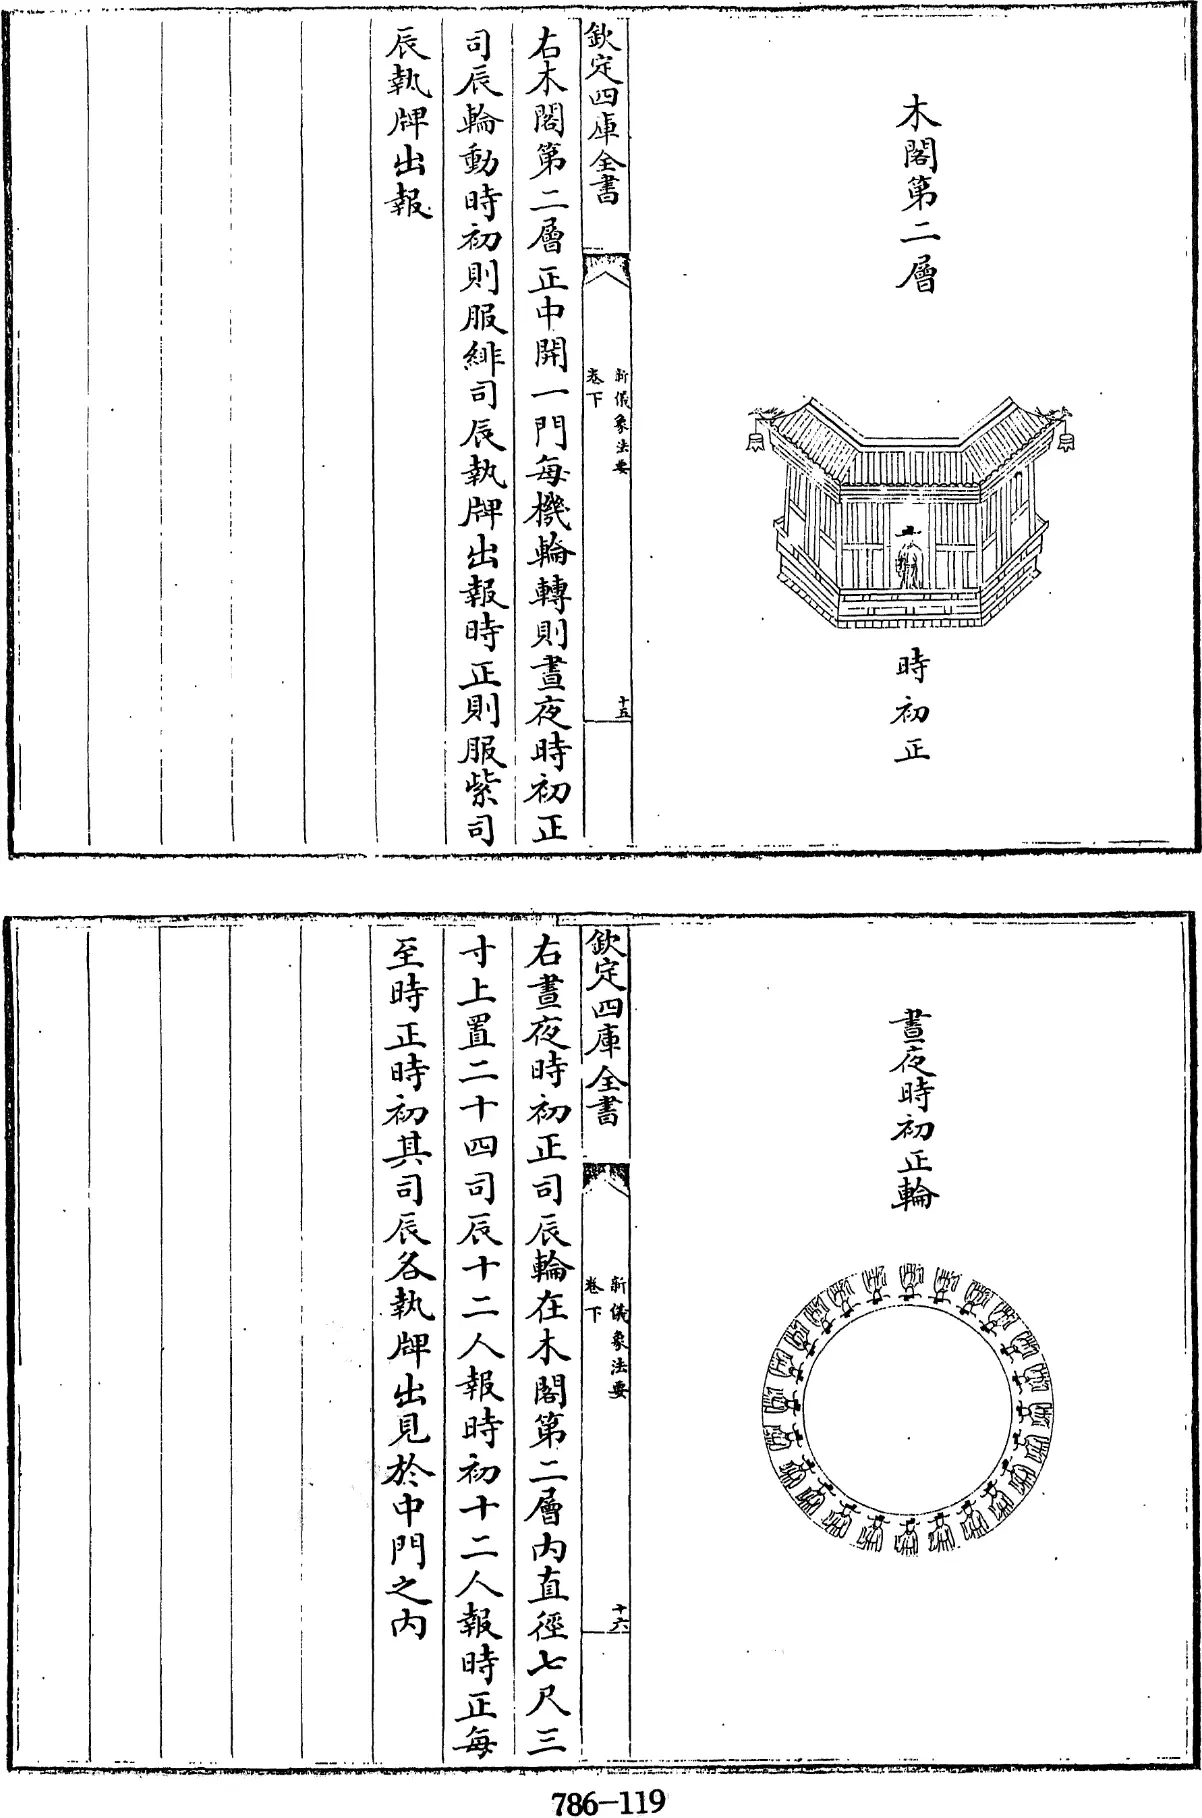 木閣第二層
時初正
欽定四庫全書
新儀象法要
卷下
十五
右木閣第二層正中開一門每機輪轉則晝夜時初正
司辰輪動時初則服緋司辰執牌出報時正則服紫司
辰執牌出報
晝夜時初正輪
欽定四庫全書
新儀象法要
卷下
十六
右晝夜時初正司辰輪在木閣第二層内直徑七尺三
寸上置二十四司辰十二人報時初十二人報時正每
至時正時初其司辰各執牌出見於中門之内
786-119